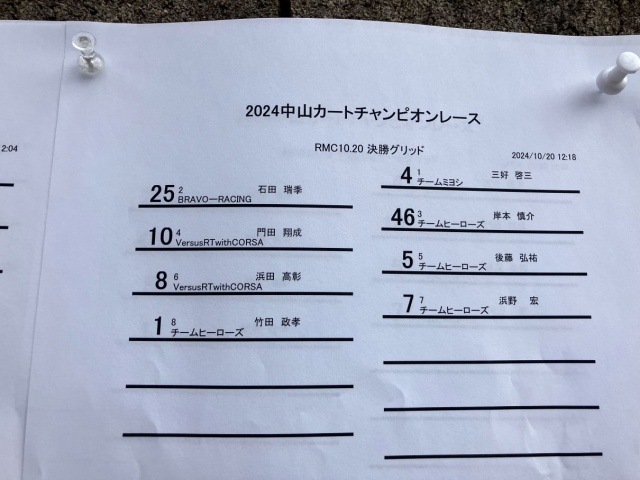 2024中山カートチャンピオンレース
RMC10.20 決勝グリッド
2024/10/20 12:18
2:04
4 1 三好 啓三
チームミヨシ
25 2 石田 瑞季
BRAVOーRACING
46 3 岸本 慎介
チームヒーローズ
10 4 門田 翔成
VersusRTwithCORSA
5 5 後藤 弘祐
チームヒーローズ
8 6 浜田 高彰
VersusRTwithCORSA
7 7 浜野 宏
チームヒーローズ
1 8 竹田 政孝
チームヒーローズ